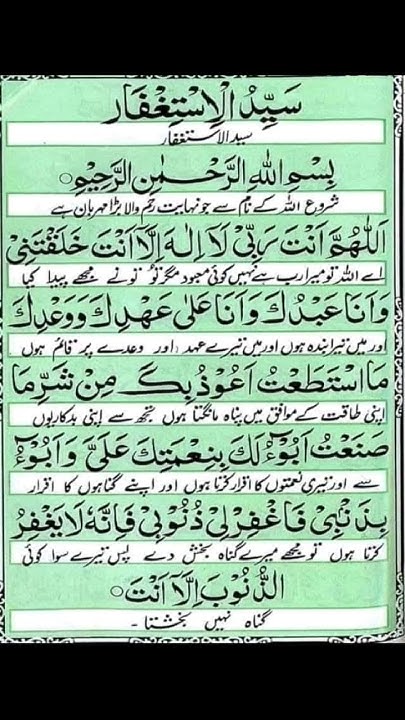 سَيِّدُ الْاِسْتِغْفَار
سید الاستغفار
بِسْمِ اللهِ الرَّحْمٰنِ الرَّحِيْمِ
شروع اللہ کے نام سے جو نہایت رحم والا بڑا مہربان ہے
اَللّٰهُمَّ اَنْتَ رَبِّيْ لَا اِلٰهَ اِلَّا اَنْتَ خَلَقْتَنِيْ
اے اللہ تو میرا رب ہے نہیں کوئی معبود مگر تو تو نے مجھے پیدا کیا
وَاَنَا عَبْدُكَ وَاَنَا عَلٰى عَهْدِكَ وَوَعْدِكَ
اور میں تیرا بندہ ہوں اور میں تیرے عہد اور وعدے پر قائم ہوں
مَا اسْتَطَعْتُ اَعُوْذُ بِكَ مِنْ شَرِّ مَا
اپنی طاقت کے موافق میں پناہ مانگتا ہوں تجھ سے اپنی بدکاریوں
صَنَعْتُ اَبُوْٓءُ لَكَ بِنِعْمَتِكَ عَلَيَّ وَاَبُوْٓءُ
سے اور تیری نعمتوں کا اقرار کرتا ہوں اور اپنے گناہوں کا اقرار
بِذَنْبِيْ فَاغْفِرْ لِيْ ذُنُوْبِيْ فَاِنَّهٗ لَا يَغْفِرُ
کرتا ہوں تو مجھے میرے گناہ بخش دے پس تیرے سوا کوئی
الذُّنُوْبَ اِلَّآ اَنْتَ
گناہ نہیں بخشتا -